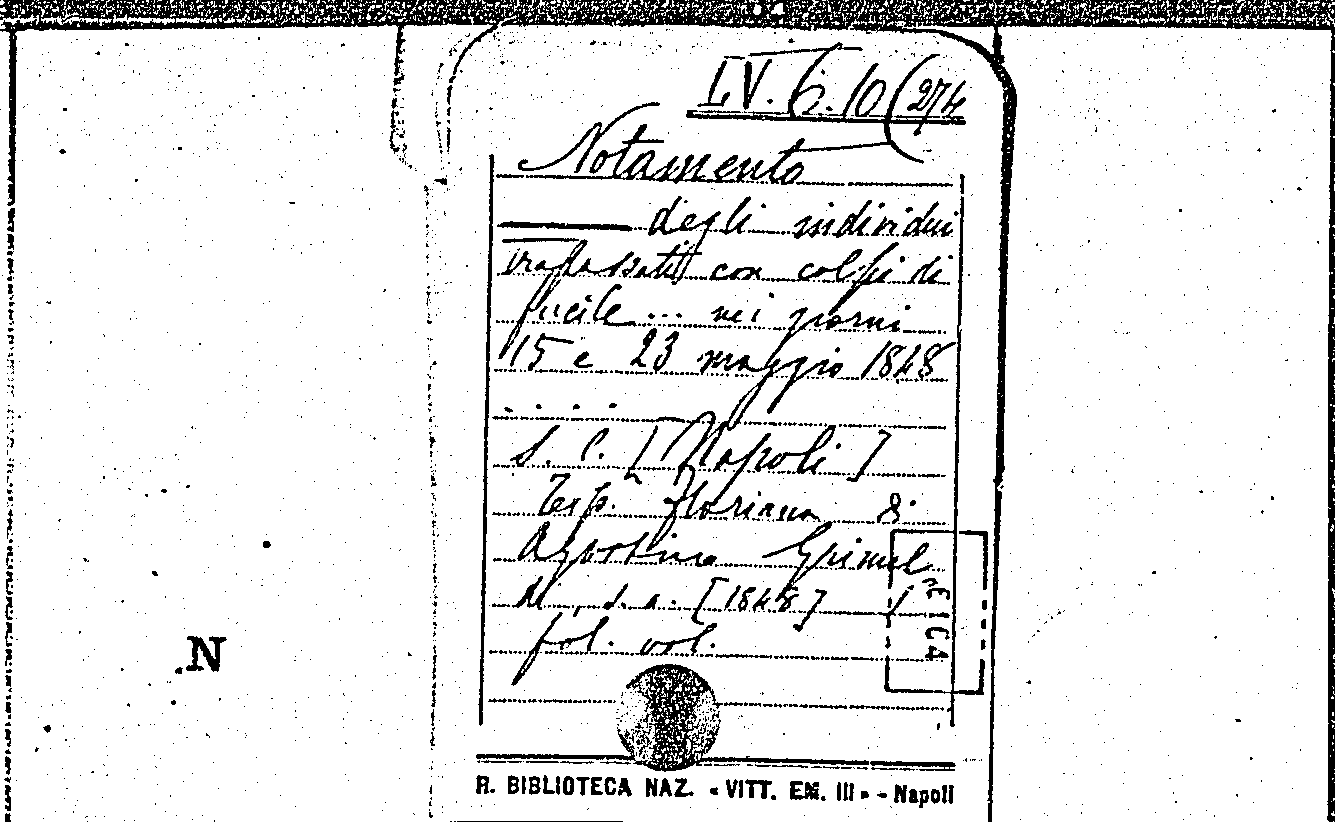 L.V. 6.10 (274
Notamento
degli individui
trapassati con colpi di
fucile ... nei giorni
15 e 23 maggio 1848
. . . .
S. l. [Napoli]
Tip. Floriana &
Agostino Grimal
di, s. a. [1848] 1
fol. vol.
N
R. BIBLIOTECA NAZ. «VITT. EM. III» - Napoli